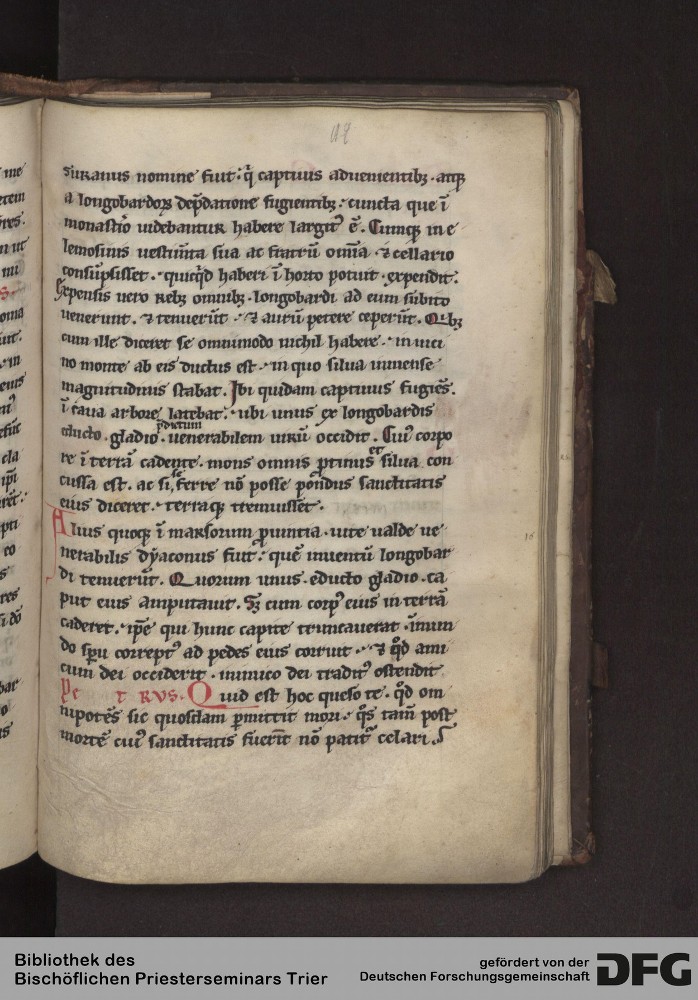 118
suranus nomine fuit: q̇ captiuus aduenientibꝫ · atqꝫ
a longobardoꝝ dep̄datione fugientibꝫ: cuncta que ī
monast̄io uidebantur habere largit᷒ ē. Cumqꝫ in e
lemosinis uestim̄ta sua ac fratrū om̄ia · ⁊ cellario
consūpsisset · quicq̇d haberi ī horto potuit · expendit.
Expensis uero rebꝫ omnibꝫ · longobardi ad eum subito
uenerunt · ⁊ tenuer̄ut · ⁊ aurū petere ceper̄ut. Quibꝫ
cum ille diceret se omnimodo nichil habere · in uici
no monte ab eis ductus est · in quo silua inmense
magnitudinis stabat. Ibi quidam captiuus fugiēs.
ī caua arbore latebat · ubi unus ex longobardis
educto · gladio · p̄dictum uenerabilem uirū occidit. Cui᷒ corpo
re ī terrā cadente · mons omnis ꝓtinus et silua con
cussa est · ac si se ferre nō posse pond᷒us sanctitatis
eius diceret · terraqꝫ tremuisset.
Alius quoqꝫ ī marsorum ꝓuintia · uite ualde ue
nerabilis dyaconus fuit: quē inuentū longobar
di tenuer̄ut. Quorum unus · educto gladio · ca
put eius amputauit. Sꝫ cum corp᷒ eius in terrā
caderet · ip̄e qui hunc capite truncauerat · īmun
do sp̄u corrept᷒ ad pedes eius corruit · ⁊ q̊d ami
cum dei occiderit · inimico dei tradit᷒ ostendit
Petrus. Quid est hoc queso te · q̊d om
nipotēs sic quosdam ꝑmittit mori · q̊s tam̄ post
mortē cui᷒ sanctitatis fuer̄it nō patit᷑ celari.
Bibliothek des
Bischöflichen Priesterseminars Trier
gefördert von der
Deutschen Forschungsgemeinschaft
DFG